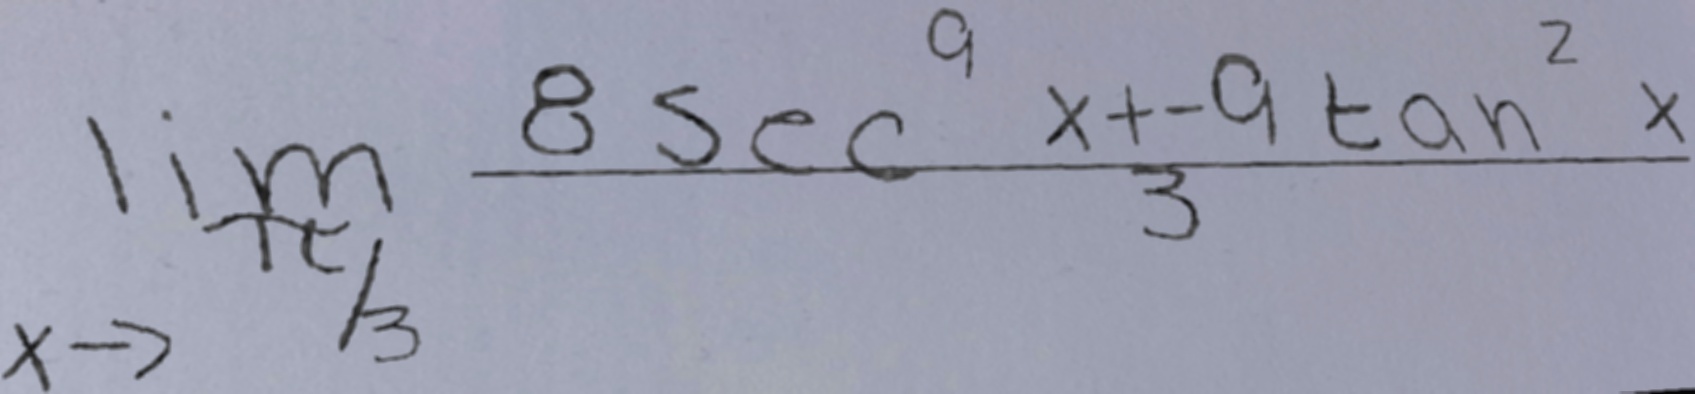 lim x→π/3 (8 sec^9 x + -9 tan^2 x) / 3